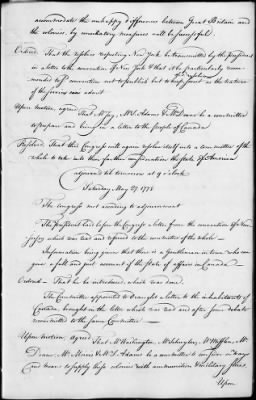 accommodate the unhappy differences between Great Britain and
the colonies, by conciliatory measures will be successful.
Ordered, That the resolves respecting New York be transmitted by the president
in a letter to the convention of New York & that it be particularly recom-
mended to sd convention not to publish but to keep secret the resolves
as the nature of the service may admit
Upon motion, agreed That Mr Jay, Mr S. Adams & Mr Deane be a committee
to prepare and bring in a letter to the people of Canada
Resolved That this Congress will again resolve itself into a committee of the
whole to take into their farther consideration the state of America
adjourned till tomorrow at 9 o'clock
Saturday May 27. 1775
The congress met according to adjournment
The president laid before the Congress a letter from the convention of New
Jersey which was read and referred to the committee of the whole —
Information being given that there is a Gentleman in town who can
give a full and just account of the state of affairs in Canada
Ordered — That he be introduced, which was done.
The Committee appointed to draught a letter to the inhabitants of
Canada, brought in the letter which was read and after some debate
recommitted to the same Committee —
Upon Motion, agreed That Mr Washington, Mr Schuyler, Mr Mifflin, Mr
Deane, Mr Morris & Mr S. Adams be a committee to consider on ways
and means to supply these colonies with ammunition & military stores.
Upon